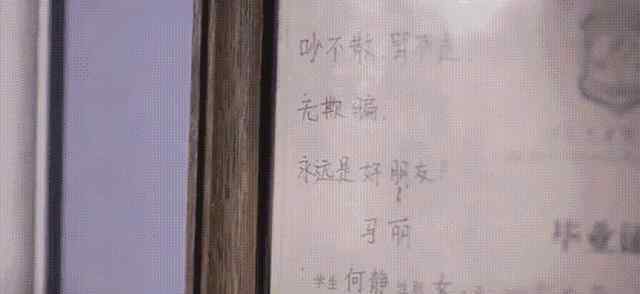 吵不散，骂不走，
无欺骗，
永远是好朋友！
马丽
毕业证
学生 何静 性别 女